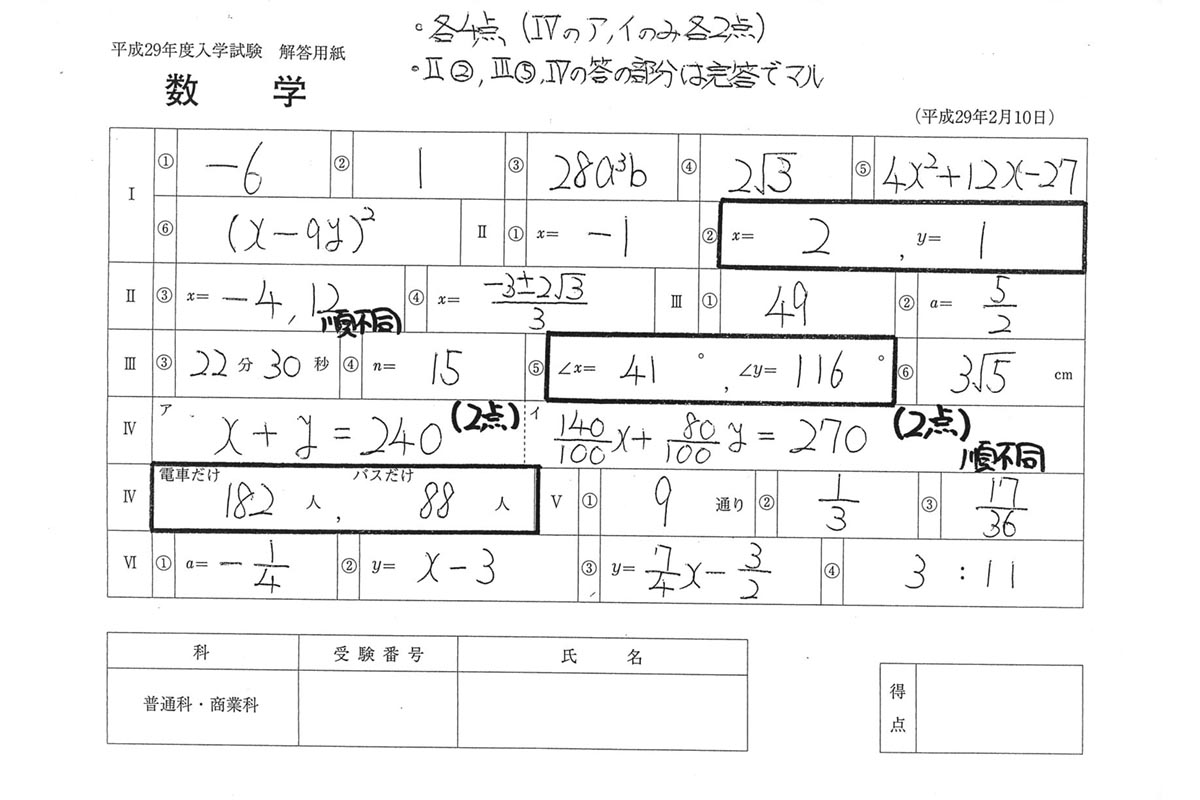 ・各4点、(Ⅳのア,イのみ各2点)
平成29年度入学試験 解答用紙
・Ⅱ②,Ⅲ⑤,Ⅳの答の部分は完答でマル
数 学
(平成29年2月10日)
Ⅰ ① -6 ② 1 ③ 28a³b ④ 2√3 ⑤ 4x²+12x-27
⑥ (x-9y)² Ⅱ ① x= -1 ② x= 2 , y= 1
Ⅱ ③ x= -4, 12 順不同 ④ x= (-3±2√3)/3 Ⅲ ① 49 ② a= 5/2
Ⅲ ③ 22分30秒 ④ n= 15 ⑤ ∠x= 41°, ∠y= 116° ⑥ 3√5 cm
Ⅳ ア x+y=240 (2点) イ 140/100x+80/100y=270 (2点) 順不同
Ⅳ 電車だけ 182人, バスだけ 88人 Ⅴ ① 9 通り ② 1/3 ③ 17/36
Ⅵ ① a= -1/4 ② y= x-3 ③ y= 7/4x-3/2 ④ 3:11
科 受験番号 氏 名
普通科・商業科
得点